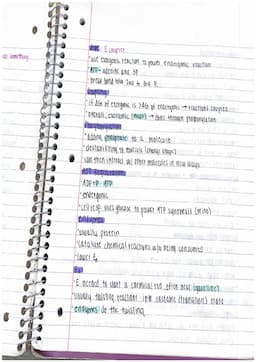 E coupling
• use exergonic reaction to power endergonic reaction
ATP - adenine and 3P
• break bond b/w 2nd & 3rd P
Coupling
• if ΔG of exergonic is > ΔG of endergonic → reactions coupled
exergonic → does through phosphorylation
Phosphorylation
• adding phosphate to a molecule
• destabilizing to molecule (change shape)
• can then interact w/ other molecules in new ways
ATP Regeneration
• ADP + P → ATP
• endergonic
• cell resp. uses glucose to power ATP synthesis (mito)
Enzymes
• usually protein
• catalyze chemical reactions w/o being consumed
• lower Ea
Ea
• E needed to start a chemical rxn, often heat
• usually twisting reactant into unstable (transition) state
• enzymes do the twisting